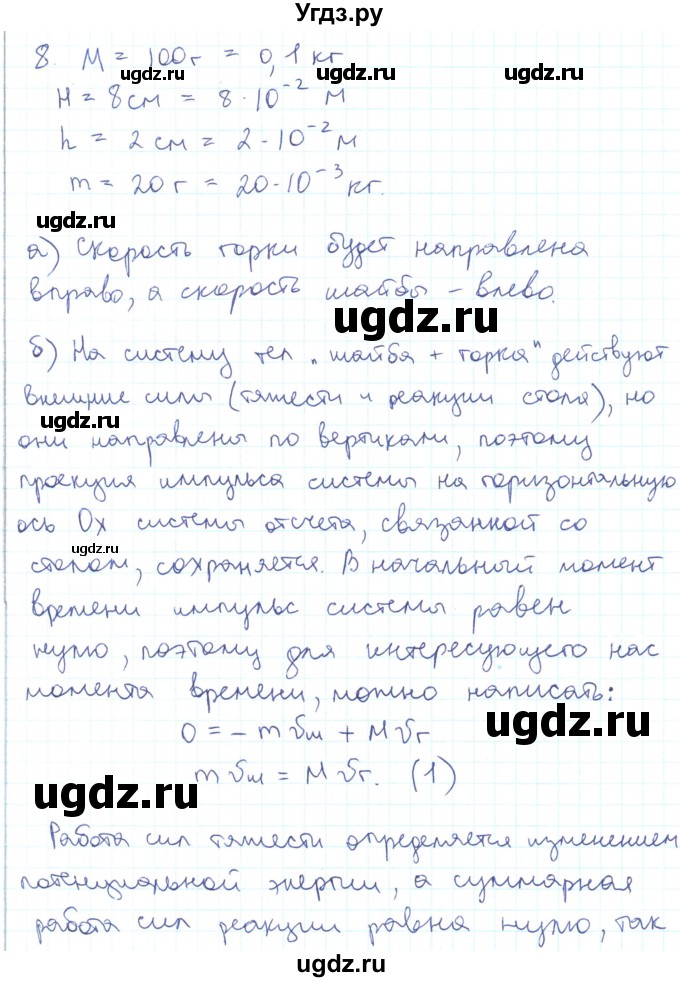 Угдз.ру
8. M = 100г = 0,1 кг
ugdz.ru ugdz.ru
H = 8 см = 8 · 10⁻² м
h = 2 см = 2 · 10⁻² м
m = 20 г = 20 · 10⁻³ кг.
ugdz.ru
а) Скорость горки будет направлена
вправо, а скорость шайбы – влево.
ugdz.ru
б) На систему тел „шайба + горка" действуют
внешние силы (тяжести и реакции стола), но
ugdz.ru
они направлены по вертикали, поэтому
проекция импульса системы на горизонтальную
ось Ox системы отсчета, связанной со
ugdz.ru
столом, сохраняется. В начальный момент
времени импульс системы равен
нулю, поэтому для интересующего нас
момента времени, можно написать:
0 = - m υш + M υг
ugdz.ru
m υш = M υг. (1)
ugdz.ru
Работа сил тяжести определяется изменением
потенциальной энергии, а суммарная
работа сил реакции равна нулю, так
ugdz.ru